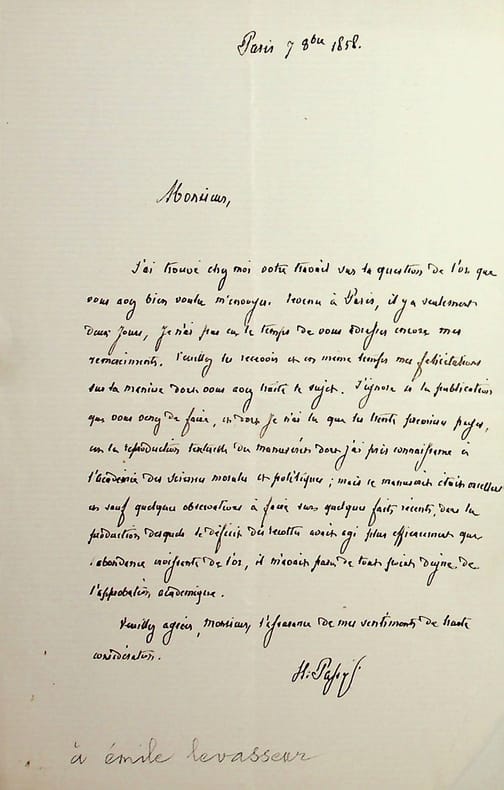 Paris 7 8bre 1858.
Monsieur,
J'ai trouvé chez moi votre travail sur la question de l'or que
vous avez bien voulu m'envoyer. Revenu à Paris, il y a seulement
deux jours, je n'ai pas eu le temps de vous adresser encore mes
remerciments. Veuillez les recevoir et en même temps mes félicitations
sur la manière dont vous avez traité le sujet. J'ignore si la publication
que vous venez de faire, et dont je n'ai lu que les trente premières pages,
est la reproduction textuelle du manuscrit dont j'ai pris connaissance à
l'académie des sciences morales et politiques ; mais le manuscrit était excellent
et sauf quelques observations à faire sur quelques faits récents, dans la
production desquels le déficit des récoltes avait agi plus efficacement que
l'abondance croissante de l'or, il m'avait paru de tout point digne de
l'approbation académique.
Veuillez agréer, Monsieur, l'assurance de mes sentiments de haute
considération.
H. Passy
à émile levasseur